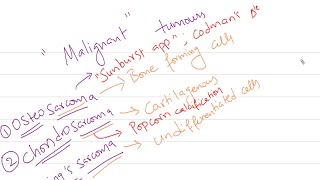 " Malignant tumours "
"Sunburst app" : Codman's
① Osteo Sarcoma → Bone forming cells
② Chondro Sarcoma → Cartilagenous
Popcorn calcification
ing's sarcoma → undifferentiated cells